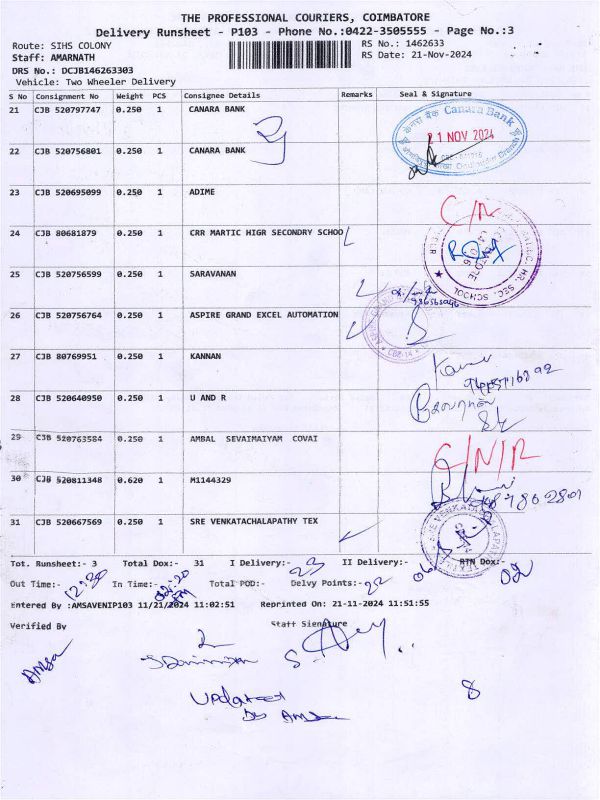 THE PROFESSIONAL COURIERS, COIMBATORE
Delivery Runsheet - P103 - Phone No.:0422-3505555 - Page No.:3
Route: SIHS COLONY
RS No.: 1462633
Staff: AMARNATH
RS Date: 21-Nov-2024
DRS No.: DCJB146263303
Vehicle: Two Wheeler Delivery
S No Consignment No Weight PCS Consignee Details Remarks Seal & Signature
21 CJB 520797747 0.250 1 CANARA BANK
Canara Bank
21 NOV 2024
22 CJB 520756801 0.250 1 CANARA BANK
23 CJB 520695099 0.250 1 ADIME
24 CJB 80681879 0.250 1 CRR MARTIC HIGR SECONDRY SCHOO
HR. SEC. SCHOOL
25 CJB 520756599 0.250 1 SARAVANAN
26 CJB 520756764 0.250 1 ASPIRE GRAND EXCEL AUTOMATION
27 CJB 80769951 0.250 1 KANNAN
28 CJB 520640950 0.250 1 U AND R
29 CJB 520763584 0.250 1 AMBAL SEVAIMAIYAM COVAI
C/N/R
30 CJB 520811348 0.620 1 M1144329
31 CJB 520667569 0.250 1 SRE VENKATACHALAPATHY TEX
Tot. Runsheet:- 3 Total Dox:- 31 I Delivery:- 23 II Delivery:- RTN Dox:- 02
Out Time:- 12:30 In Time:- Total POD:- Delvy Points:- 22
Entered By :AMSAVENIP103 11/21/2024 11:02:51 Reprinted On: 21-11-2024 11:51:55
Verified By Staff Signature
Amsa
Updated
By Amsa
8